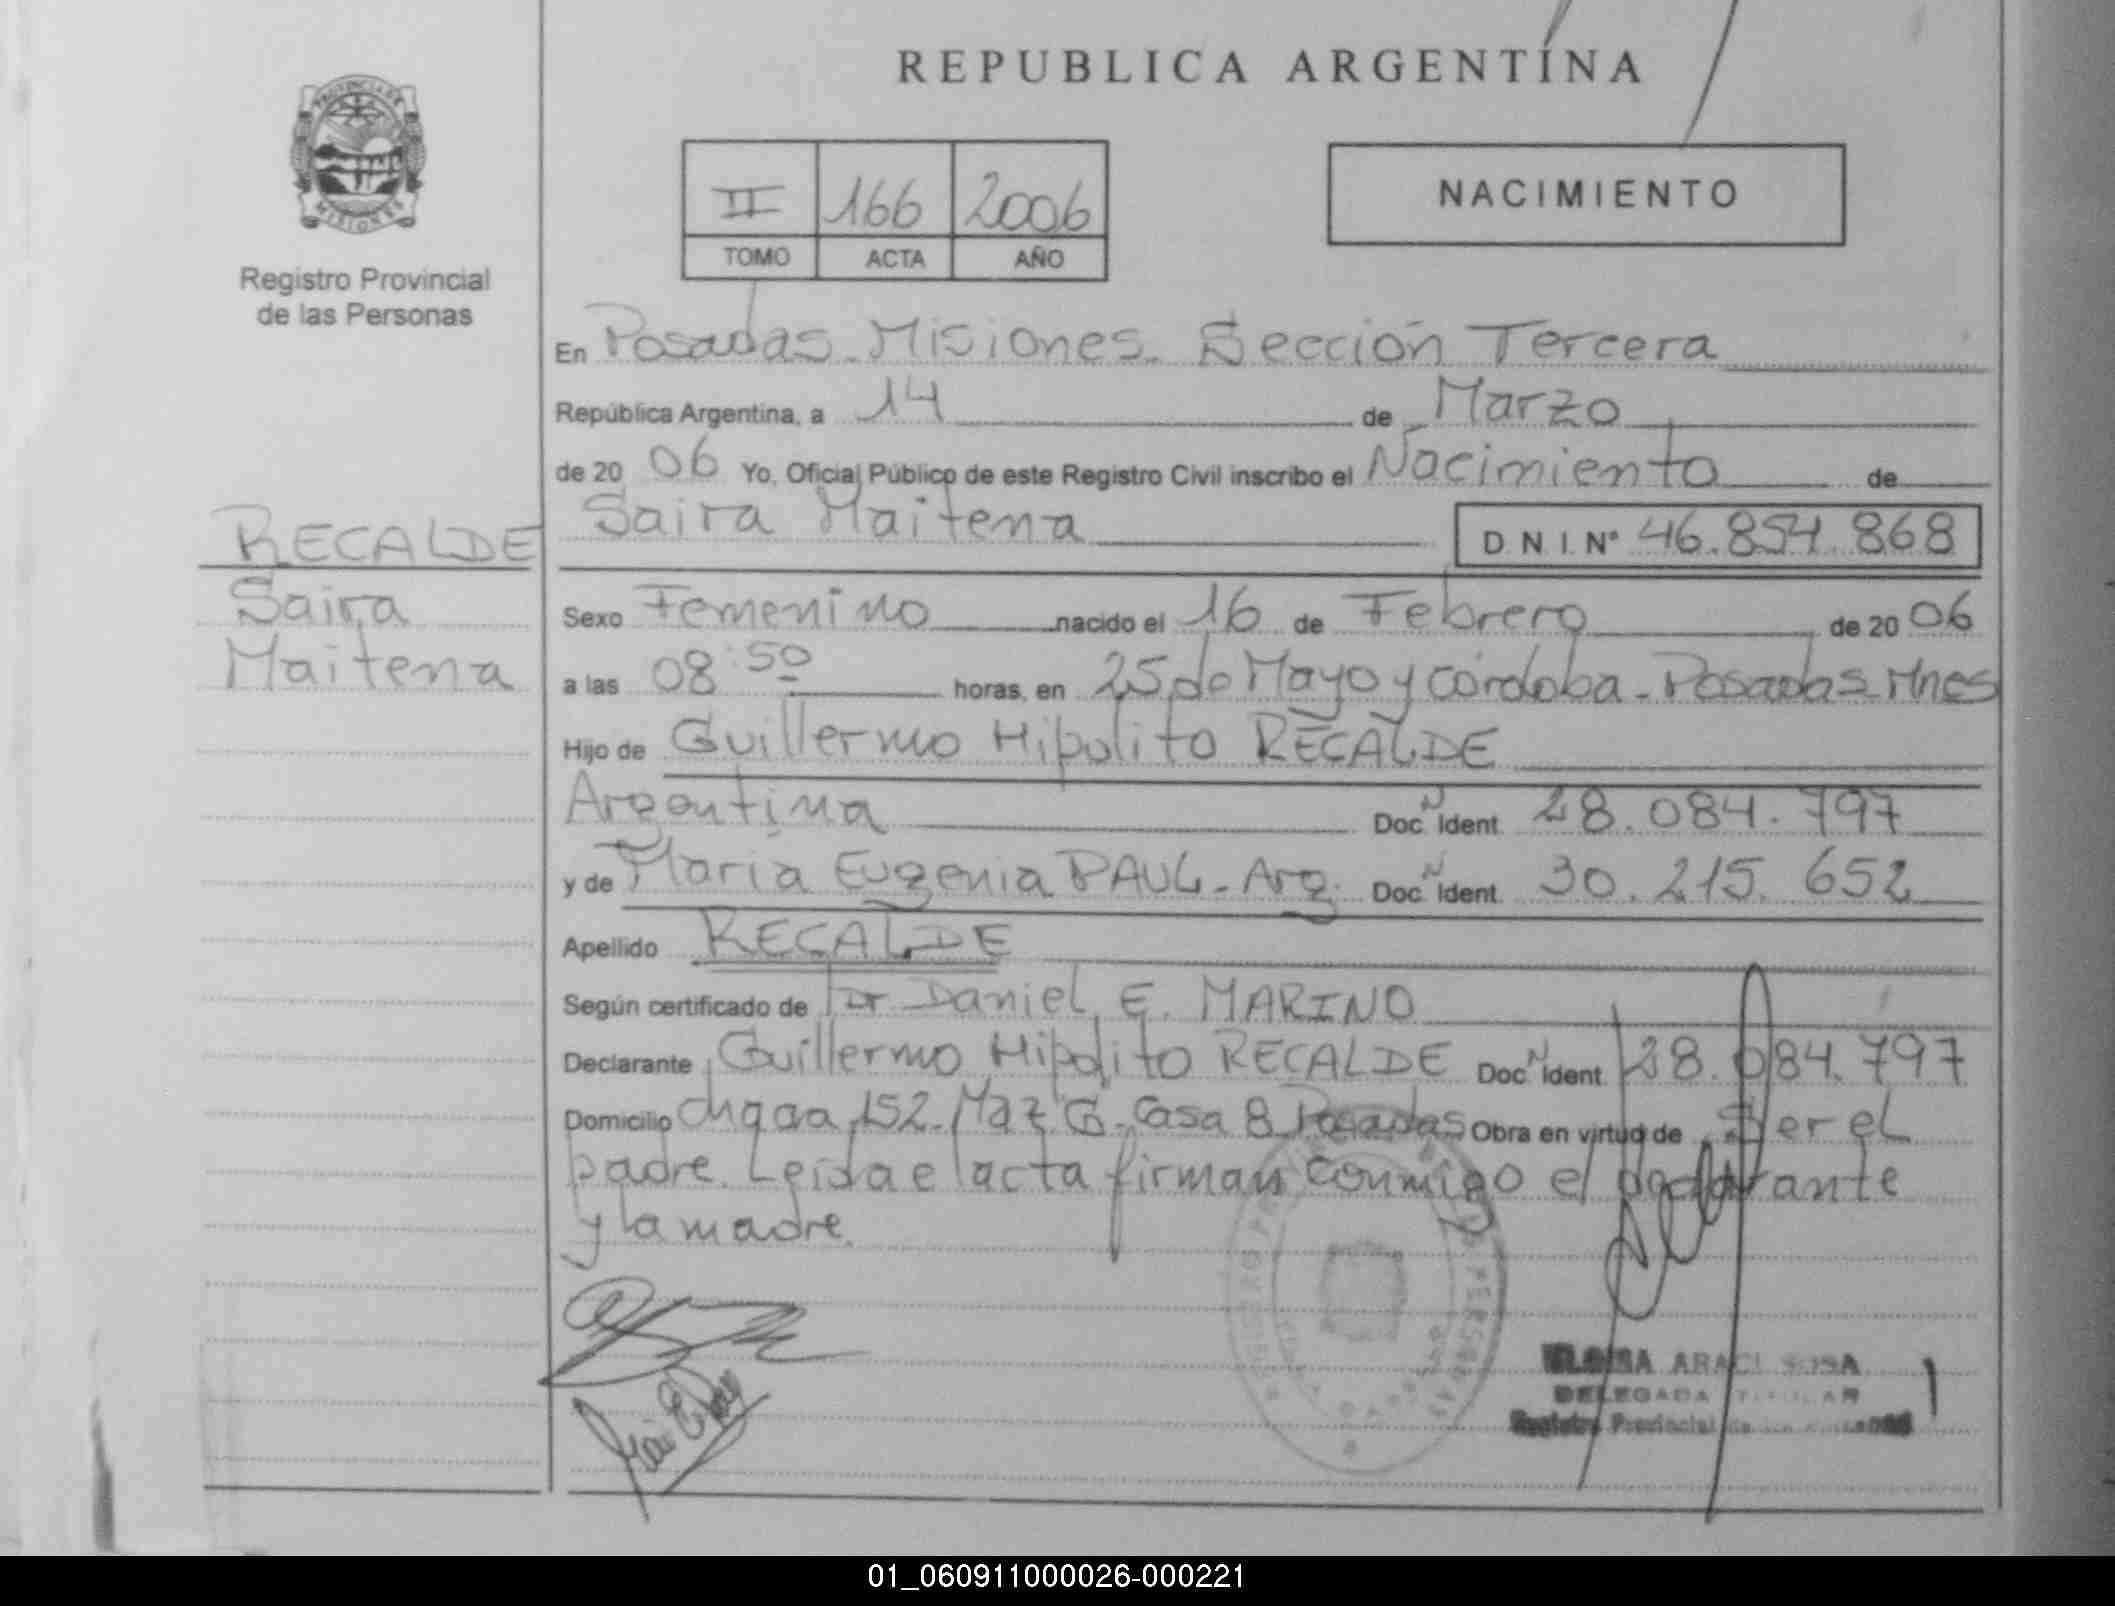 REPUBLICA ARGENTINA
PROVINCIA DE
MISIONES
Registro Provincial
de las Personas
II 166 2006
TOMO ACTA AÑO
NACIMIENTO
En Posadas Misiones. Sección Tercera
República Argentina, a 14 de Marzo
de 20 06 Yo, Oficial Público de este Registro Civil inscribo el Nacimiento de
Saira Maitena D.N.I. Nº 46.854.868
RECALDE
Saira
Maitena
Sexo Femenino nacido el 16 de Febrero de 20 06
a las 08:50 horas, en 25 de Mayo y Córdoba - Posadas - Mnes
Hijo de Guillermo Hipolito RECALDE
Argentina Doc. N Ident. 28.084.797
y de Maria Eugenia PAUL - Arg. Doc. N Ident. 30.215.652
Apellido RECALDE
Según certificado de Dr Daniel E. MARINO
Declarante Guillermo Hipolito RECALDE Doc N Ident. 28.084.797
Domicilio 152. Maz G. Casa 8 Posadas Obra en virtud de Ser el
padre. Leida el acta firman conmigo el declarante
y la madre.
ARACI SOSA
DELEGADA TITULAR
Registro Provincial de las
01_060911000026-000221